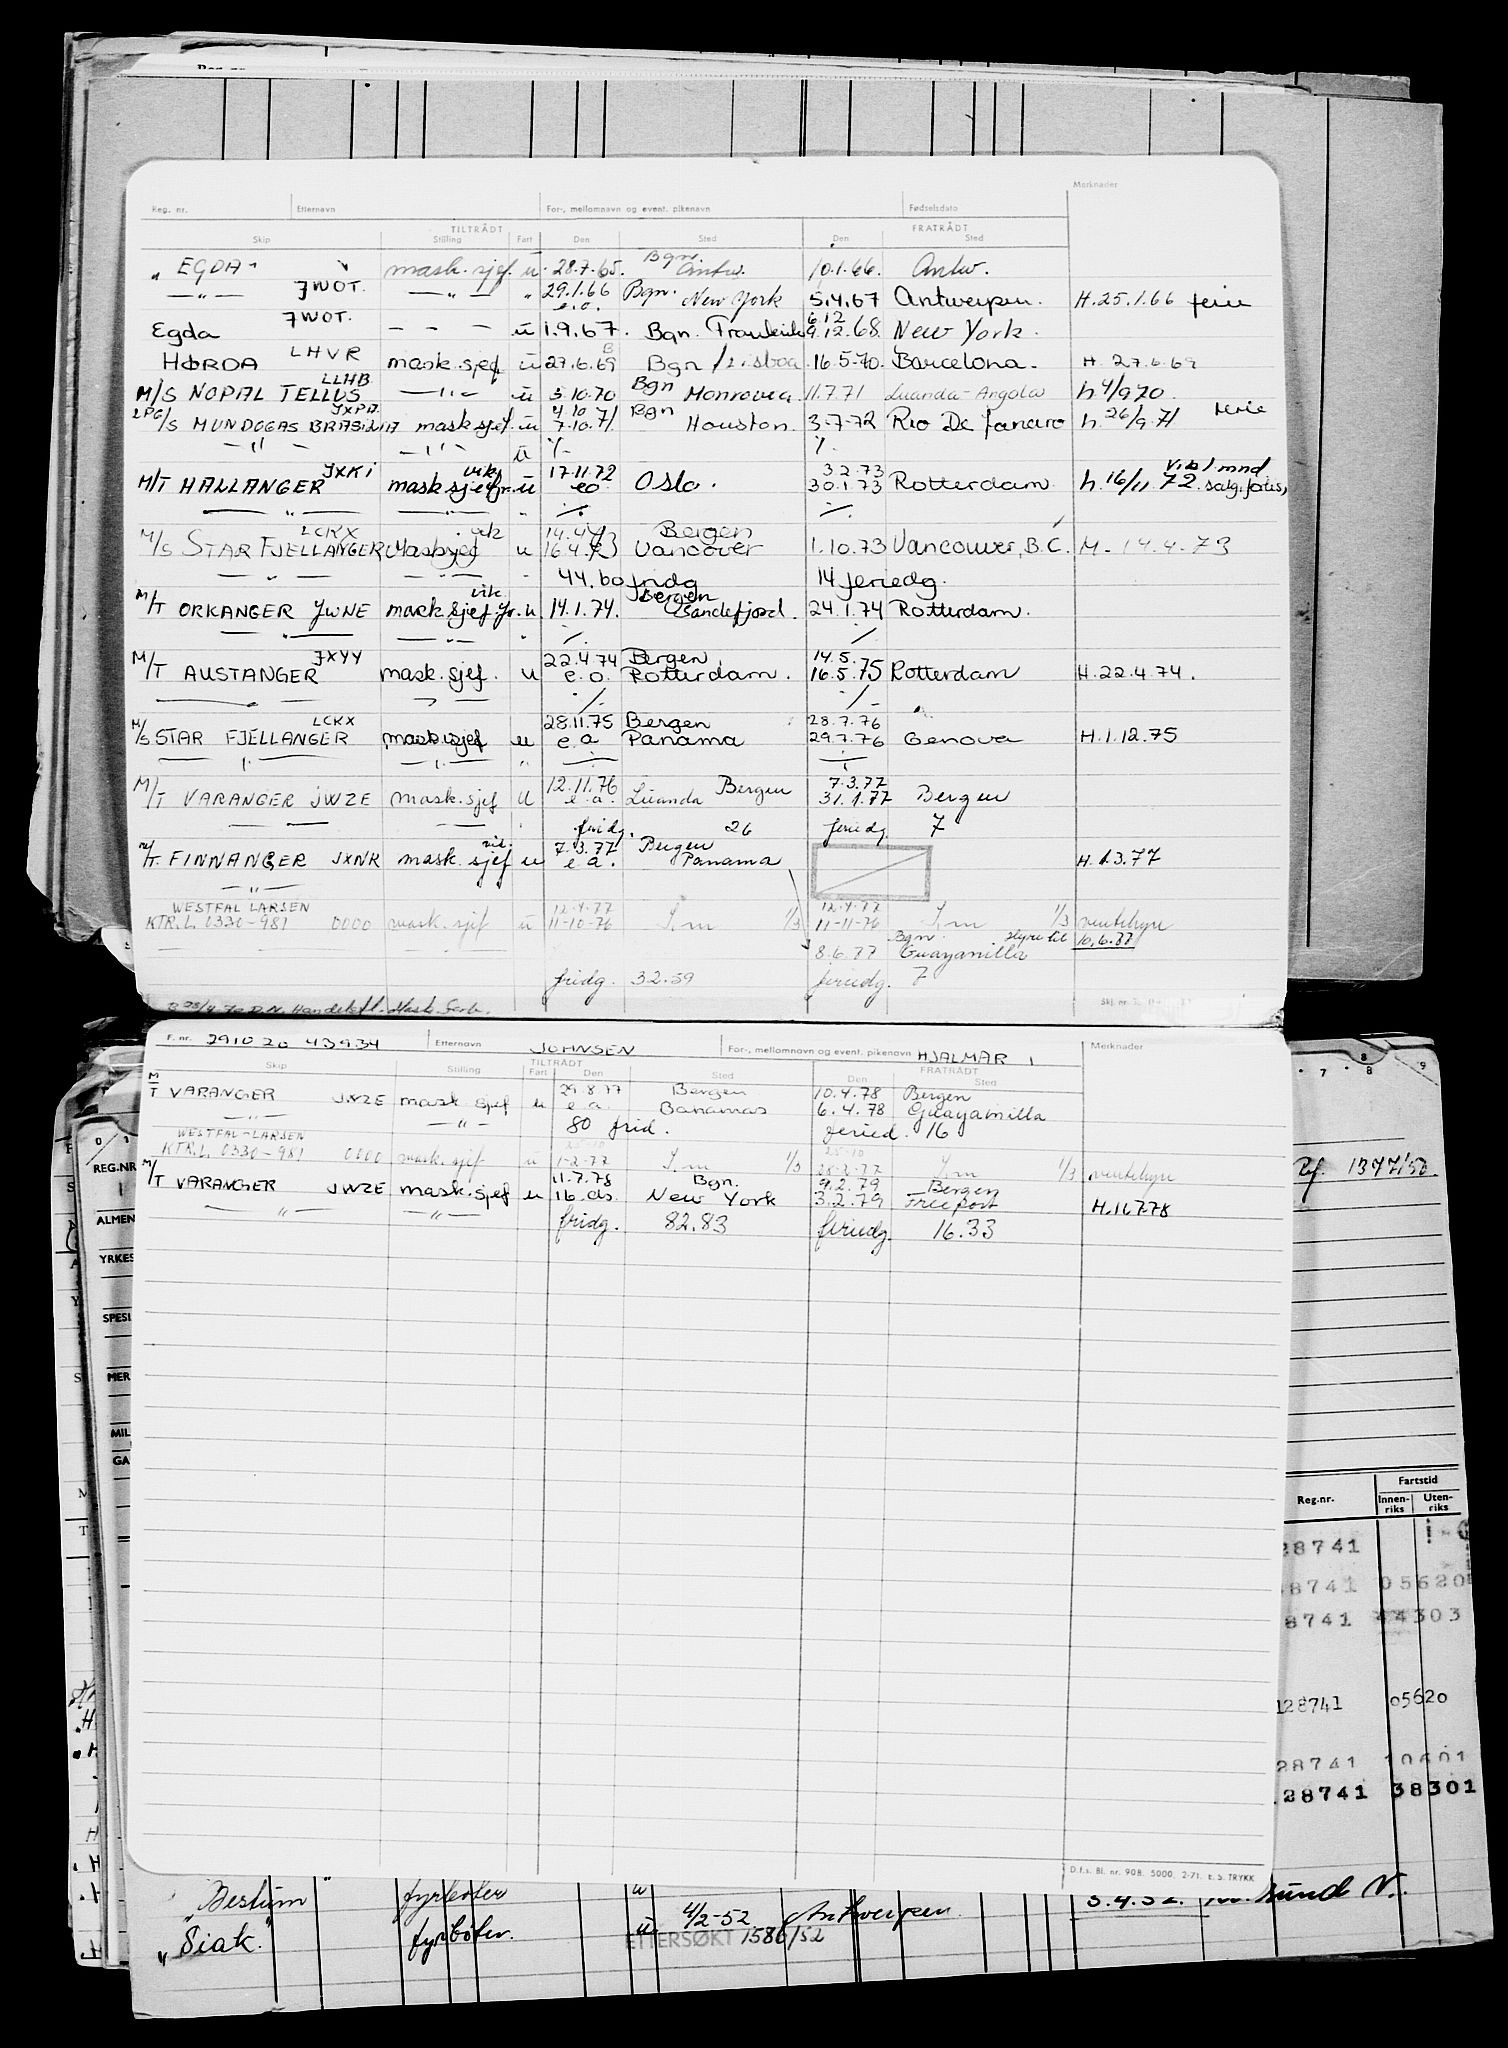 Merknader
Reg. nr. Etternavn For-, mellomnavn og event. pikenavn Fødselsdato
TILTRÅDT FRATRÅDT
Skip Stilling Fart Den Sted Den Sted
" EGDA " mask. sjef. u. 28.7.65. Bgn. Antw. 10.1.66. Antw.
— " — JWOT. — " — " 29.1.66 e.o. Bgn. New York 5.4.67 Antwerpen. H.25.1.66 ferie
Egda JWOT. — — — u 1.9.67. Bgn. 6.12 9.12.68. New York.
HØRDA LHVR mask sjef u 27.6.69 Bgn / Lisboa 16.5.70. Barcelona. H. 27.6.69
M/S NOPAL TELLUS LLHB — " — u 5.10.70 Bgn Monrovia. 11.7.71 Luanda-Angola h 4/9 70.
LPG/S MUNDOGAS BRASILIA JXPA mask sjef. u 4.10 7.10.71. Bgn Houston. 3-7-72 Rio De Janeiro h. 26/9.71 ferie
— " — — " — u ./. ./.
M/T HALLANGER JXKI vik. mask sjef jr. u 17.11.72 eo Oslo. 3.2.73 30.1.73 Rotterdam. h. 16/11 72.
— " — — " — " ./. ./.
M/S STAR FJELLANGER LCKX vik Masksjef u 14.4.73 16.4.73 Bergen Vancover 1.10.73 Vancouver, B.C. M. 14.4.73
— " — — " — 44.60 fridg 14 feriedg.
M/T ORKANGER JWNE vik. mask. sjef jr. u. 14.1.74. Bergen Sandefjord. 24.1.74 Rotterdam.
— " — — " — " ./. ./.
M/T AUSTANGER JXYY mask. sjef. u 22.4.74 e.o. Bergen Rotterdam. 14.5. 16.5.75 Rotterdam H.22.4.74.
./. ./.
M/S STAR FJELLANGER LCKX mask sjef u 28.11.75 e.a Bergen Panama 28.7.76 29.7.76 Genova H.1.12.75
M/T VARANGER JWZE mask. sjef u 12.11.76 e.a. Luanda Bergen 7.3.77 31.1.77 Bergen
fridg. 26 feriedg 7
M/T. FINNANGER JXNR vik. mask. sjef u 7.3.77 e.a. Bergen Panama H. 1.3.77
— " —
WESTFAL LARSEN
KTR.L. 0330-981 0000 mask. sjef u 12.4.77 11-10-76 1/3 12.4.77 11-11-76 1/3 ventehyre
Bgn. hyre til 10.6.77
8.6.77 Guayanilla
fridg. 32.59 feriedg. 7
F. nr. 291020 43934 Etternavn JOHNSEN For-, mellomnavn og event. pikenavn HJALMAR I Merknader
TILTRÅDT FRATRÅDT
Skip Stilling Fart Den Sted Den Sted
M/T VARANGER JWZE mask. sjef u 29.8.77 e.a. Bergen Bahamas 10.4.78 6.4.78 Bergen Guayanilla
— " — — " — 80 frid. feried. 16
WESTFAL-LARSEN
KTR.L. 0330-981 0000 mask. sjef u 25-10 1-2-77 1/3 25-10 28-2-77 1/3 ventehyre
M/T VARANGER JWZE mask. sjef u 11.7.78 16. ds. Bgn. New York 9.2.79 3.2.79 Bergen Freeport H.11.7.78
— " — — " — fridg. 82.83 feriedg. 16.33
D.f.s. Bl. nr. 908. 5000. 2-71. E.S. TRYKK
REG.NR
ALMEN
YRKES
SPESI
MER
MIL
GA
1347/50
Reg.nr. Fartstid
Innen-riks Uten-riks
28741
8741 05620
8741 44303
128741 05620
28741 10601
28741 38301
"Bestum" fyrbøter u 5.4.52. sund N.
"Siak." fyrbøter. u 4/2-52 Antwerpen.
ETTERSØKT 1586/52